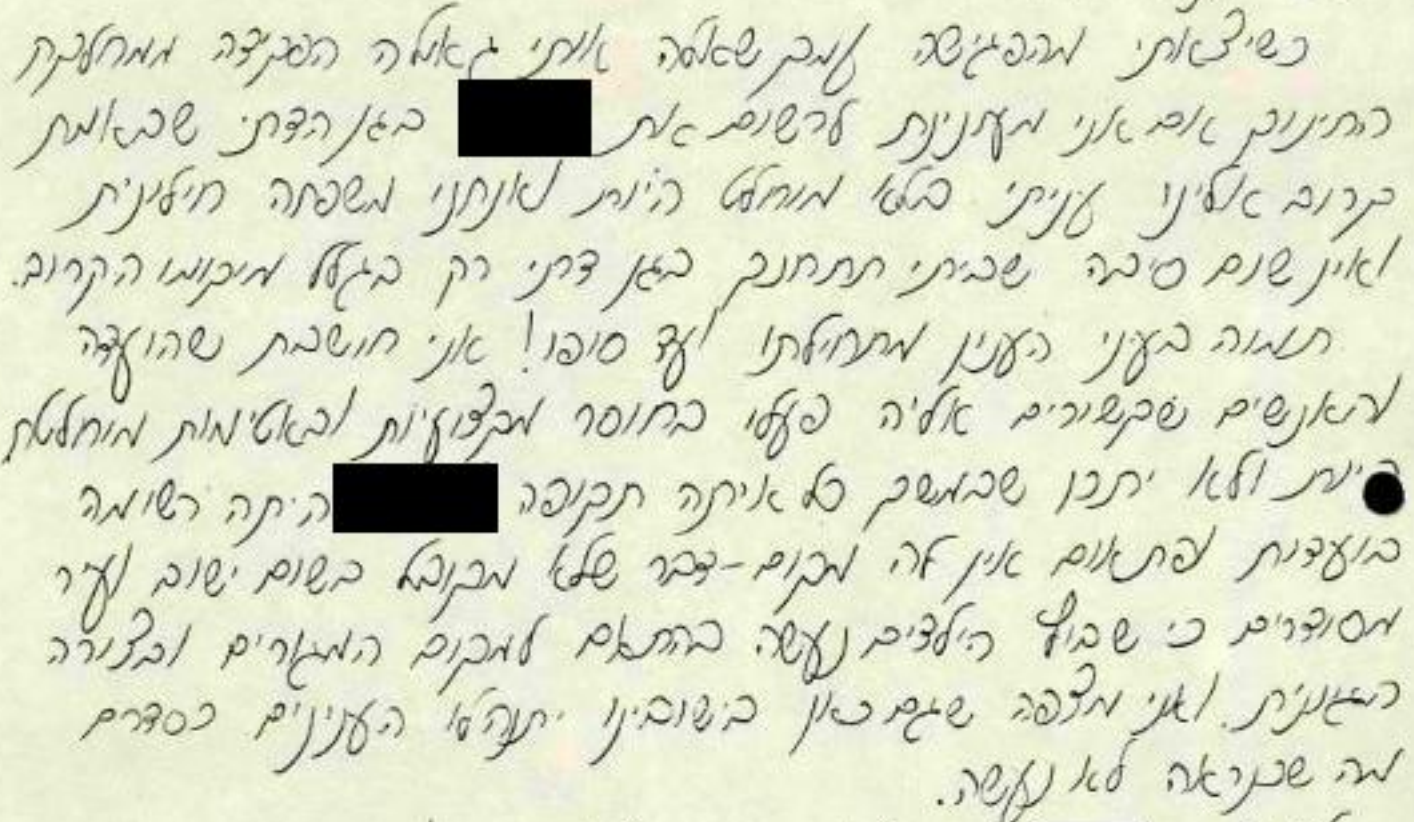 כשיצאתי מהפגישה עמך שאלה אותי גאולה הפקידה ממחלקת
החינוך אם אני מעונינת לרשום את בגן הדתי שבאמת
קרוב אלינו עניתי בלא מוחלט היות ואנחנו משפחה חילונית
ואין שום סיבה שביתי תתחנך בגן דתי רק בגלל מיקומו הקרוב.
תמוה בעיני הענין מתחילתו ועד סופו! אני חושבת שהועדה
והאנשים שקשורים אליה פעלו בחוסר מקצועיות ובאטימות מוחלטת
ולא יתכן שבמשך כל איתה תקופה היתה רשומה
בועדות ופתאום אין לה מקום-דבר שלא מקובל בשום ישוב ועיר
מסודרים כי שבוץ הילדים נעשה בהתאם למקום המגורים ובצורה
הגונית. ואני מצפה שגם כאן בישובינו יתנהלו הענינים כסדרם
מה שכנראה לא נעשה.